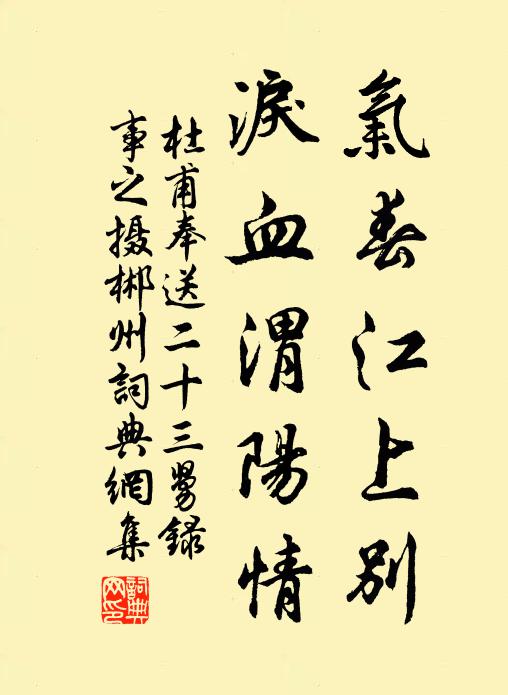 氣春江上別
淚血渭陽情
杜甫奉送二十三舅錄
事之摄郴州詞典網集
詞典网印